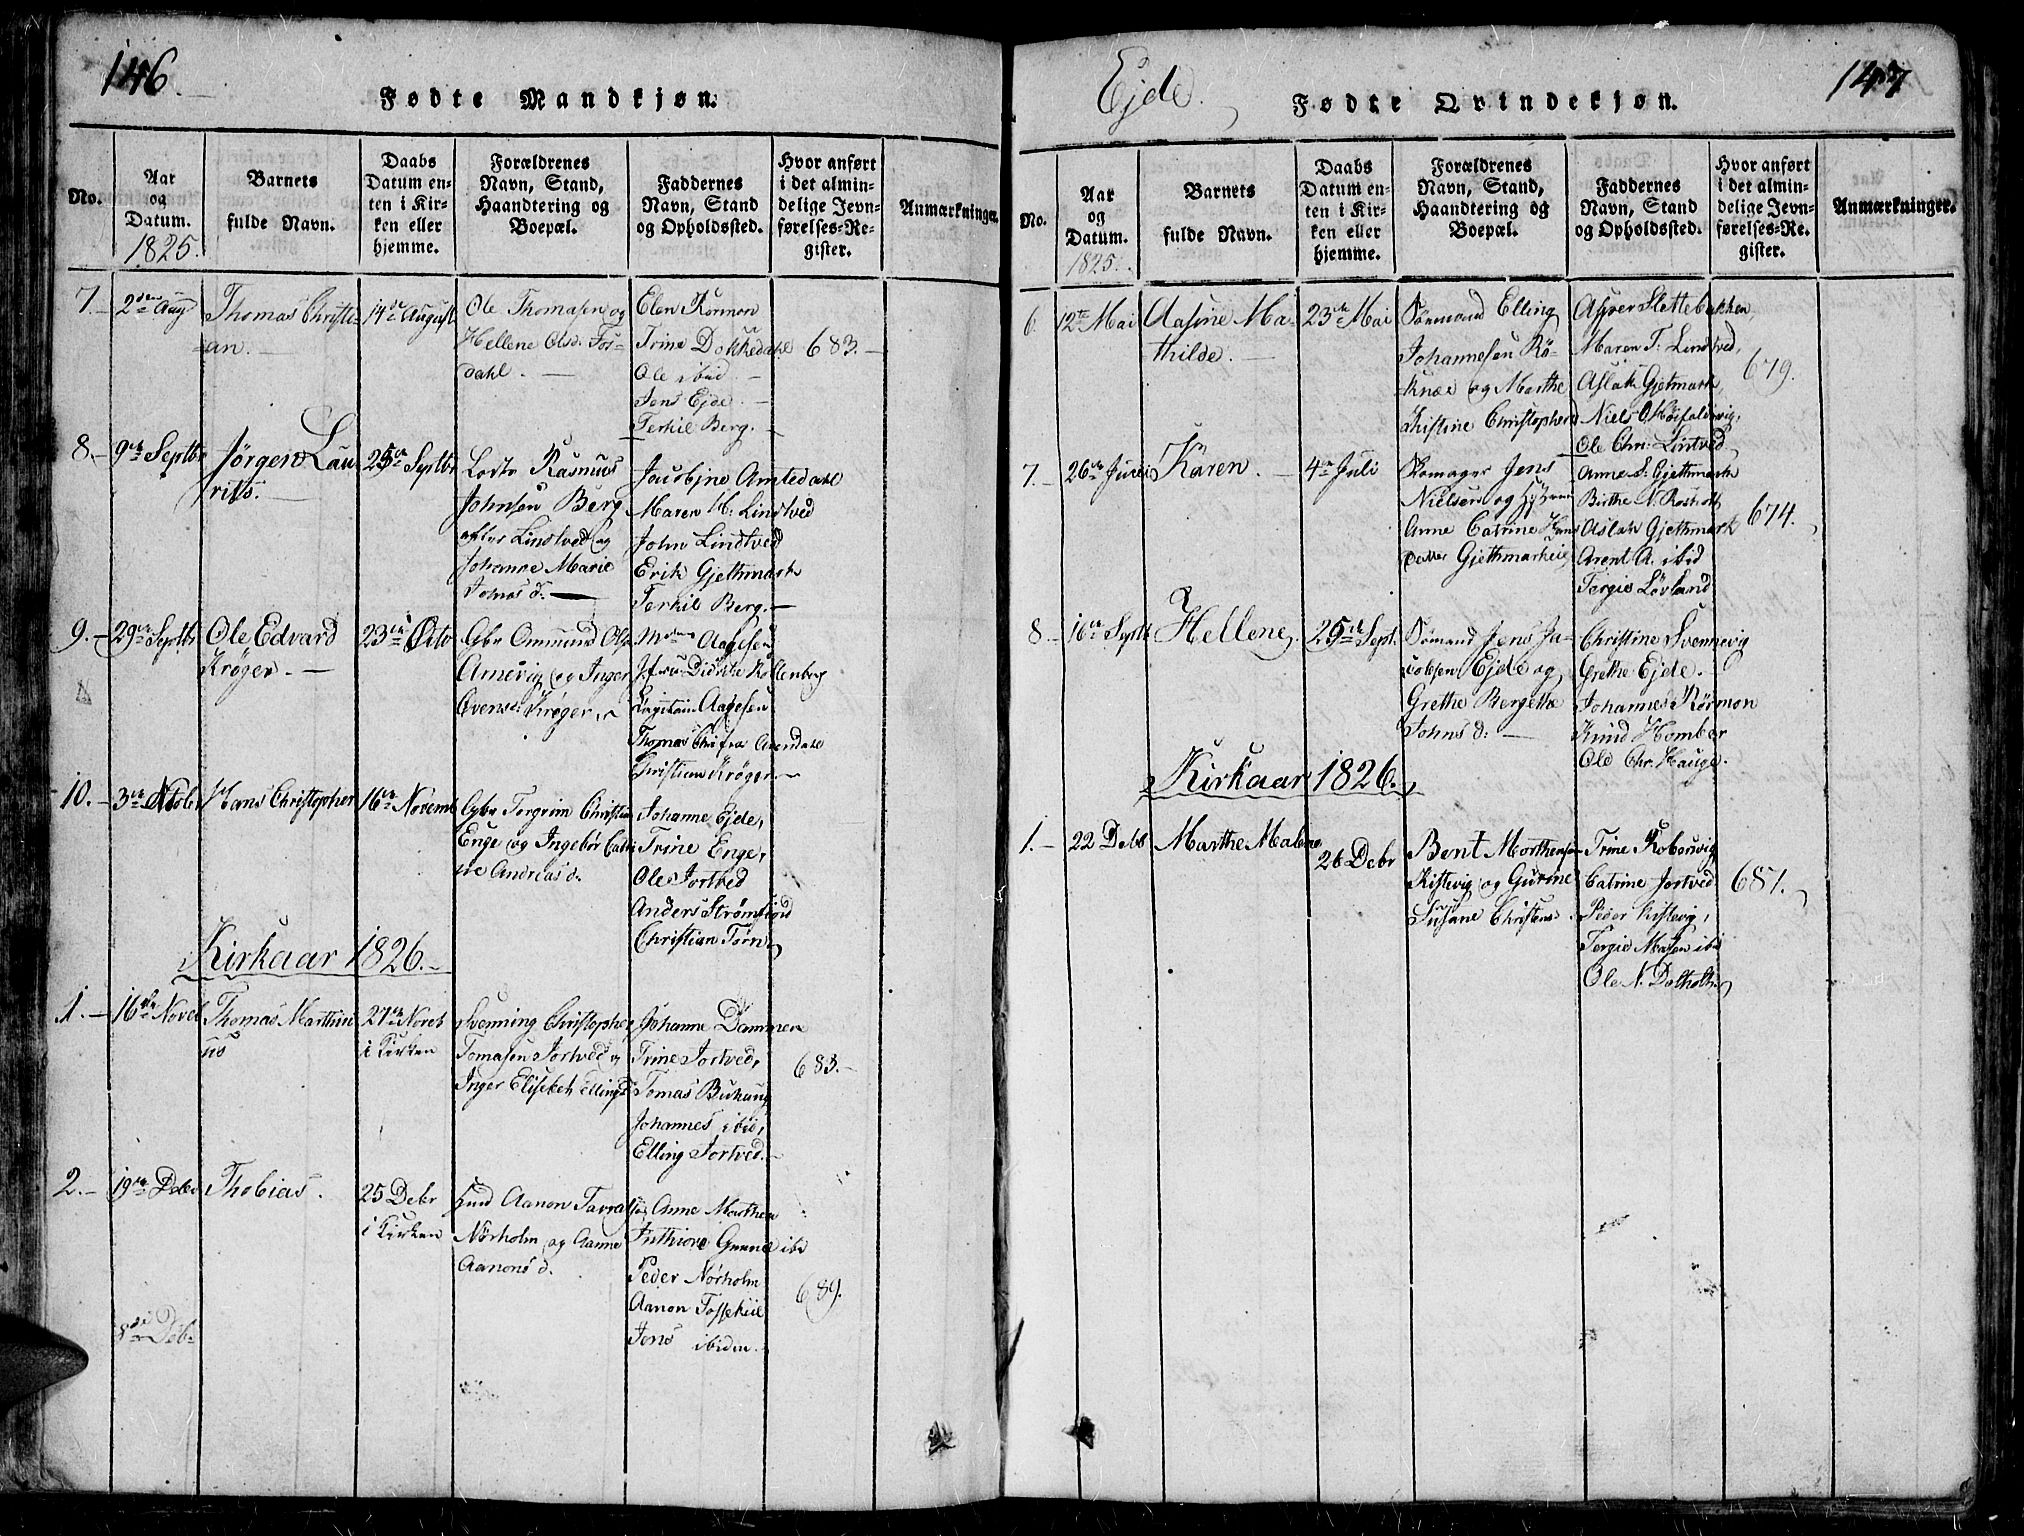 146.
Fødte Mandkjøn.
No.
Aar
og
Datum.
1825.
Barnets
fulde Navn.
Daabs
Datum en-
ten i Kir-
ken eller
hjemme.
Forældrenes
Navn, Stand,
Haandtering og
Boepæl.
Faddernes
Navn, Stand
og Opholdssted.
Hvor anført
i det almin-
delige Jevn-
førelses-Re-
gister.
Anmærkninger.
7.
2den Aug
Thomas Christi-
an.
14de August
Ole Thomasen og
Hellene Olsd:
dahl.
Elen Rørmon
Trine Dokkedahl
Ole ibid
Jens Ejde.
Terkil Berg.
683.
8.
9de Septbr
Jørgen Lau
rits.
25de Septbr
Lods Rasmus
Johnsen Berg
Lindtved og
Johanne Marie
Tomas d.
Jacobine Amtedahl
Maren M: Lindtved
John Lindtved
Erik Gjethmark
Terkil Berg.
9.
29de Septbr
Ole Edvard
Krøger.
23de Octo
Gbr Ommund Ols
Amevig og Inger
Krøger.
Aagesen
Jfru Didikke Kallenberg
Aagesen
Thomas Arendahl
Christian Krøger
10.
3de
Hans Christopher
16de Novemb
Gbr Torgrim Christian
Enge og Ingebør
ne Andreas d.
Johanne Ejde,
Trine Enge,
Ole Jortved
Anders Strømsfjord
Christian Tørn
Kirkaar 1826.
1.
16de Novbr
Thomas Marthin
us
27de Novbr
i Kirken
Svenning Christopher
Tomasen Jortved og
Inger Elisebet Ellingsd
Johanne Dammen
Trine Jortved,
Tomas
Johannes ibid,
Elling Jortved.
683.
2.
19de Debr
Thobias.
25 Debr
i Kirken
Aanon
Nørholm og Aanne
Aanons d.
Anne Marthea
Gunnel ibd
Peder Nørholm
Aanon Tossekiil
Jens ibidm.
689.
8de Deb.
Ejde.
Fødte Qvindekjøn.
147
No.
Aar
og
Datum.
1825.
Barnets
fulde Navn.
Daabs
Datum en-
ten i Kir-
ken eller
hjemme.
Forældrenes
Navn, Stand,
Haandtering og
Boepæl.
Faddernes
Navn, Stand
og Opholdssted.
Hvor anført
i det almin-
delige Jevn-
førelses-Re-
gister.
Anmærkninger.
6.
12te Mai
Aasine Ma-
thilde.
23de Mai
Sømand Elling
Johannesen Rø-
knæs og Marthe
Kistine Christophersd
Asper Slettebakken,
Maren T. Lindtved,
Aslak Gjetmark,
Niels
Ole Chr: Lintved
679.
7.
26de Junii
Karen.
4de Juli
Skomager Jens
Nielsen og
Anne Catrine Hans
datter Gjethmarkeie
Anne S. Gjethmark
Birthe N. Rosholt
Aslak Gjethmark
Arent A. ibid
Tergie Løvland
674.
8
16de Septb
Hellene.
25de Sept.
Sømand Jens Ja-
cobsen Ejde og
Grethe Bergethe
Johns d:
Christine Svennevig
Grethe Ejde.
Johannes Rørmon
Knud Homber
Ole Chr. Hauge.
Kirkaar 1826.
1.
22 Debr
Marthe Malene
26 Debr
Bent Morthensen
Kistevig og Gurine
Susane Christens.
Trine Kobervig
Catrine Jortved
Peder Kistevig,
Tergie ibid
Ole N. Dolholt
687.